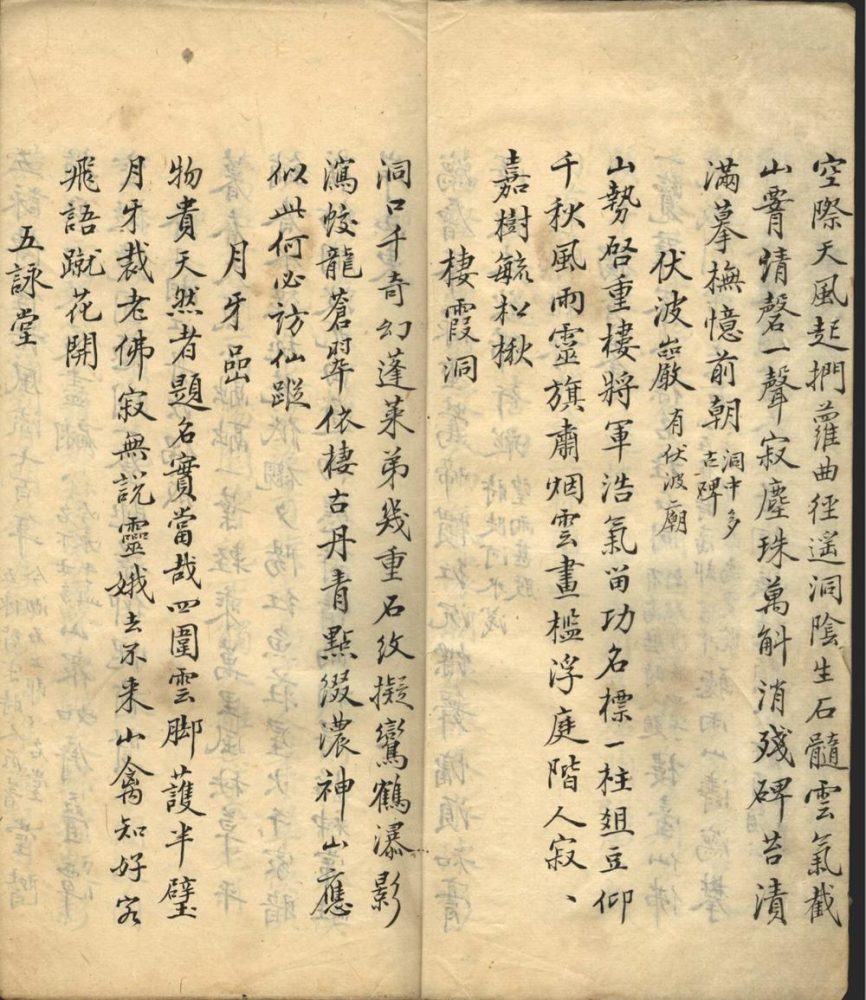 空際天風起捫蘿曲徑遥洞陰生石髓雲氣截
山霄情磬一聲寂塵珠萬斛消殘碑苔漬
滿摹撫憶前朝 洞中多古碑
伏波巖 有伏波廟
山勢啓重樓將軍浩氣留功名標一柱俎豆仰
千秋風雨靈旗肅烟雲畫檻浮庭階人寂丶
嘉樹毓松楸
棲霞洞
洞口千奇幻蓬萊第幾重石紋擬鸞鶴瀑影
瀉蛟龍蒼翠依棲古丹青點綴濃神山應
似此何必訪仙蹤
月牙嵒
物貴天然者題名實當哉四圍雲脚護半璧
月牙裁老佛寂無說靈娥去不来山禽知好客
飛語蹴花開
五詠堂